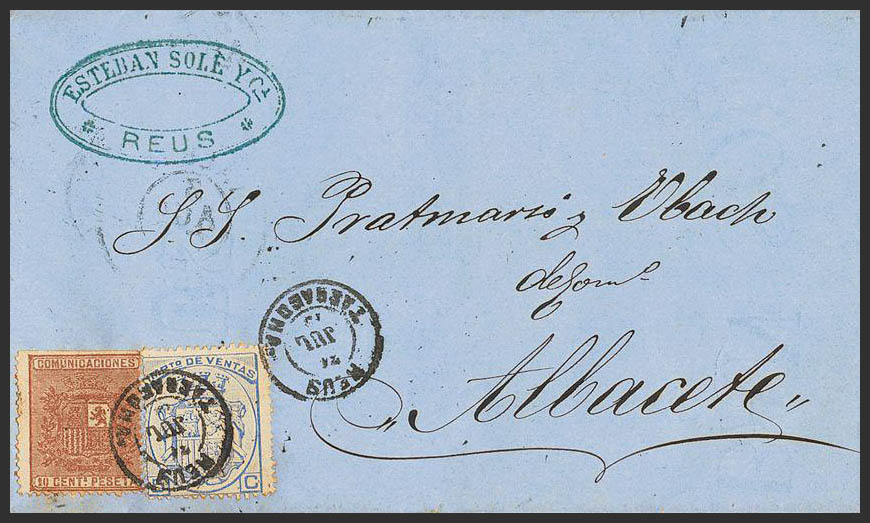 ESTEBAN SOLÉ Y Cª
REUS
S.S. Pratmarsó y Ubach
del Com.º
Albacete
REUS
24
JUL
75
TARRAGONA
COMUNICACIONES
10 CENTS PESETA
MPTO DE VENTAS
C
REUS
24
JUL
TARRAGONA